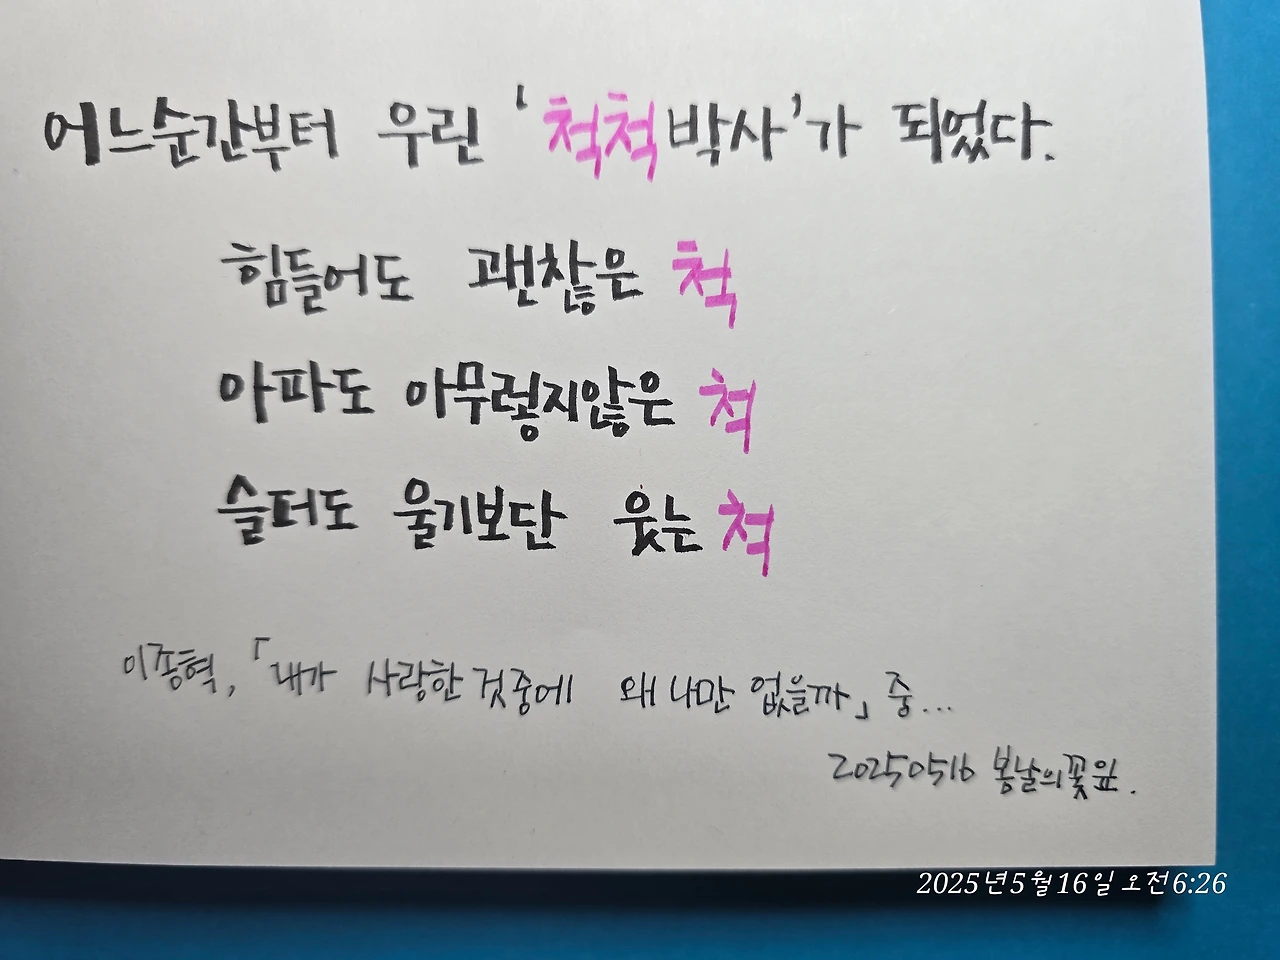 어느순간부터 우린 '척척박사'가 되었다.
힘들어도 괜찮은 척
아파도 아무렇지않은 척
슬퍼도 울기보단 웃는 척
이종혁, 「내가 사랑한 것중에 왜 나만 없을까」 중...
20250516 봄날의꽃잎.
2025년5월16일 오전6:26